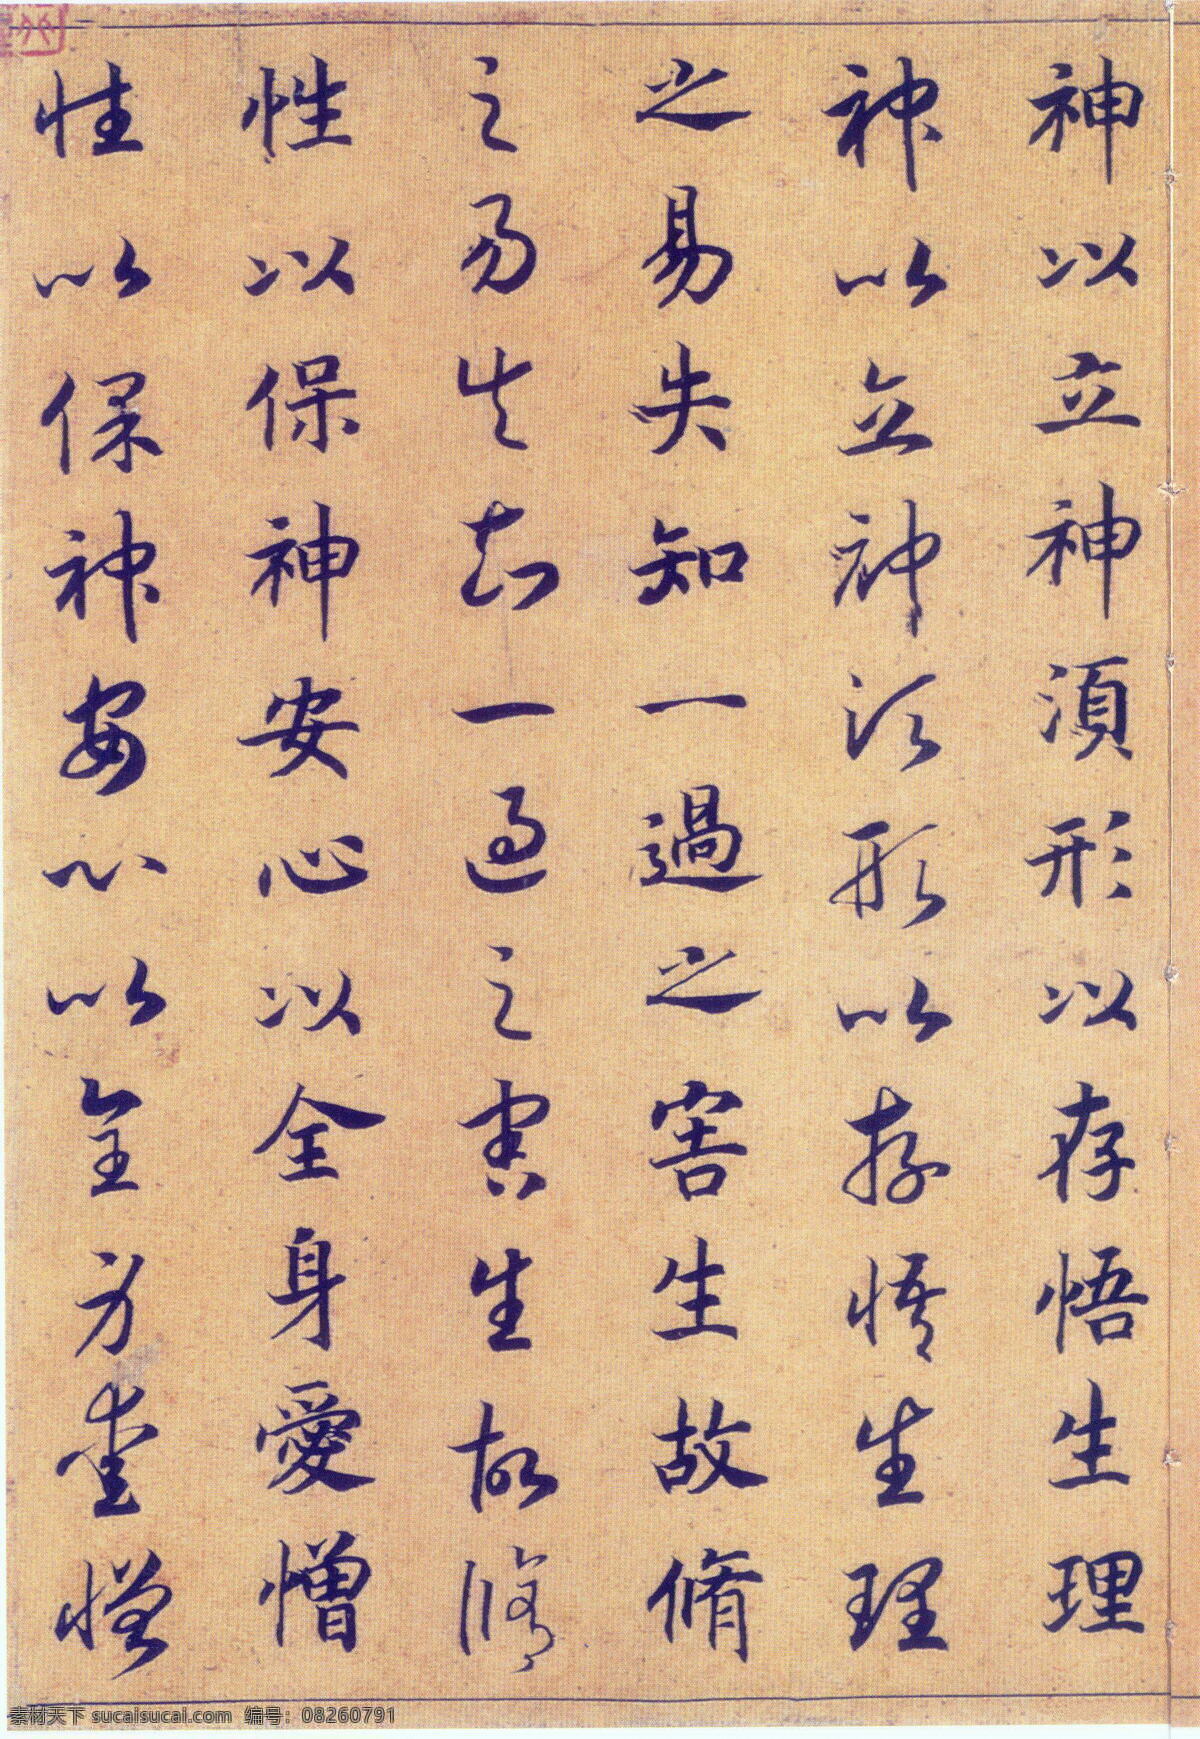 神以立神湏形以存悟生理
神以立神湏形以存悟生理
之易失知一過之害生故脩
之易失知一過之害生故脩
性以保神安心以全身愛憎
性以保神安心以全身愛憎
素材天下 sucaisucai.com 编号：08260791